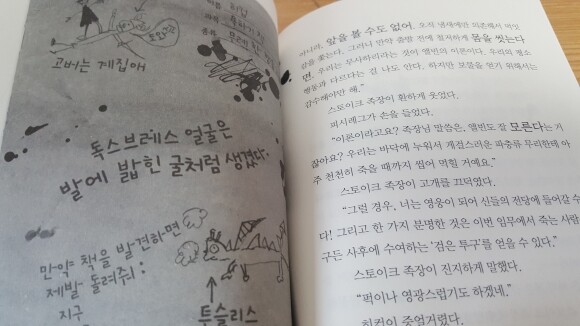 고버는 계집애
독스브레스 얼굴은
발에 밟힌 굴처럼 생겼다.
만약 책을 발견하면
제발 돌려줘:
지구
투슬리스
아니라, 앞을 볼 수도 없어. 오직 냄새에만 의존해서 먹잇
감을 쫓는다. 그러니 만약 출발 전에 철저하게 몸을 씻는다
면, 우리는 무사하리라는 것이 앨빈의 이론이다. 우리의 평소
행동과 다르다는 걸 나도 안다. 하지만 보물을 얻기 위해서는
감수해야만 해."
스토이크 족장이 환하게 웃었다.
피시레그가 손을 들었다.
"이론이라고요? 족장님 말씀은, 앨빈도 잘 모른다는 거
잖아요? 우리는 바닥에 누워서 게걸스러운 파충류 무리한테 아
주 천천히 죽을 때까지 씹어 먹힐 거예요."
스토이크 족장이 고개를 끄덕였다.
"그럴 경우, 너는 영웅이 되어 신들의 전당에 들어갈 수
다! 그리고 한 가지 분명한 것은 이번 임무에서 죽는 사람
구든 사후에 수여하는 '검은 투구'를 얻을 수 있다."
스토이크 족장이 진지하게 말했다.
"퍽이나 영광스럽기도 하겠네."
히컵이 중얼거렸다.